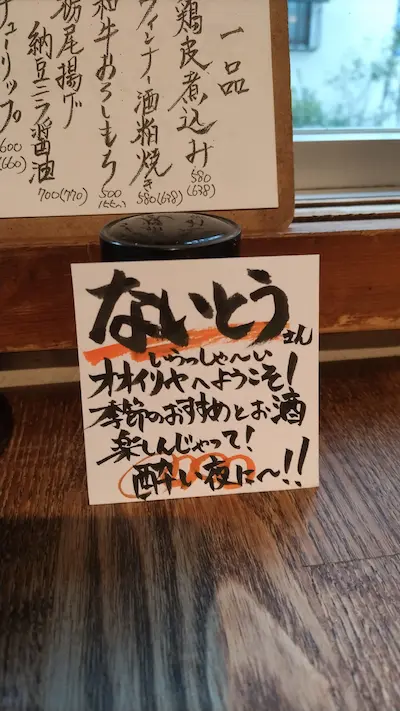 一品
鶏皮煮込み 580(638)
ウィンナー酒粕焼き 580(638)
和牛おろしもち 500
栃尾揚げ
納豆ニラ醤油 700(770)
チューリップ 600(660)
ないとうさん
いらっしゃ〜い
オオイリヤへようこそ!
季節のおすすめとお酒
楽しんじゃって!
酔い夜に〜!!